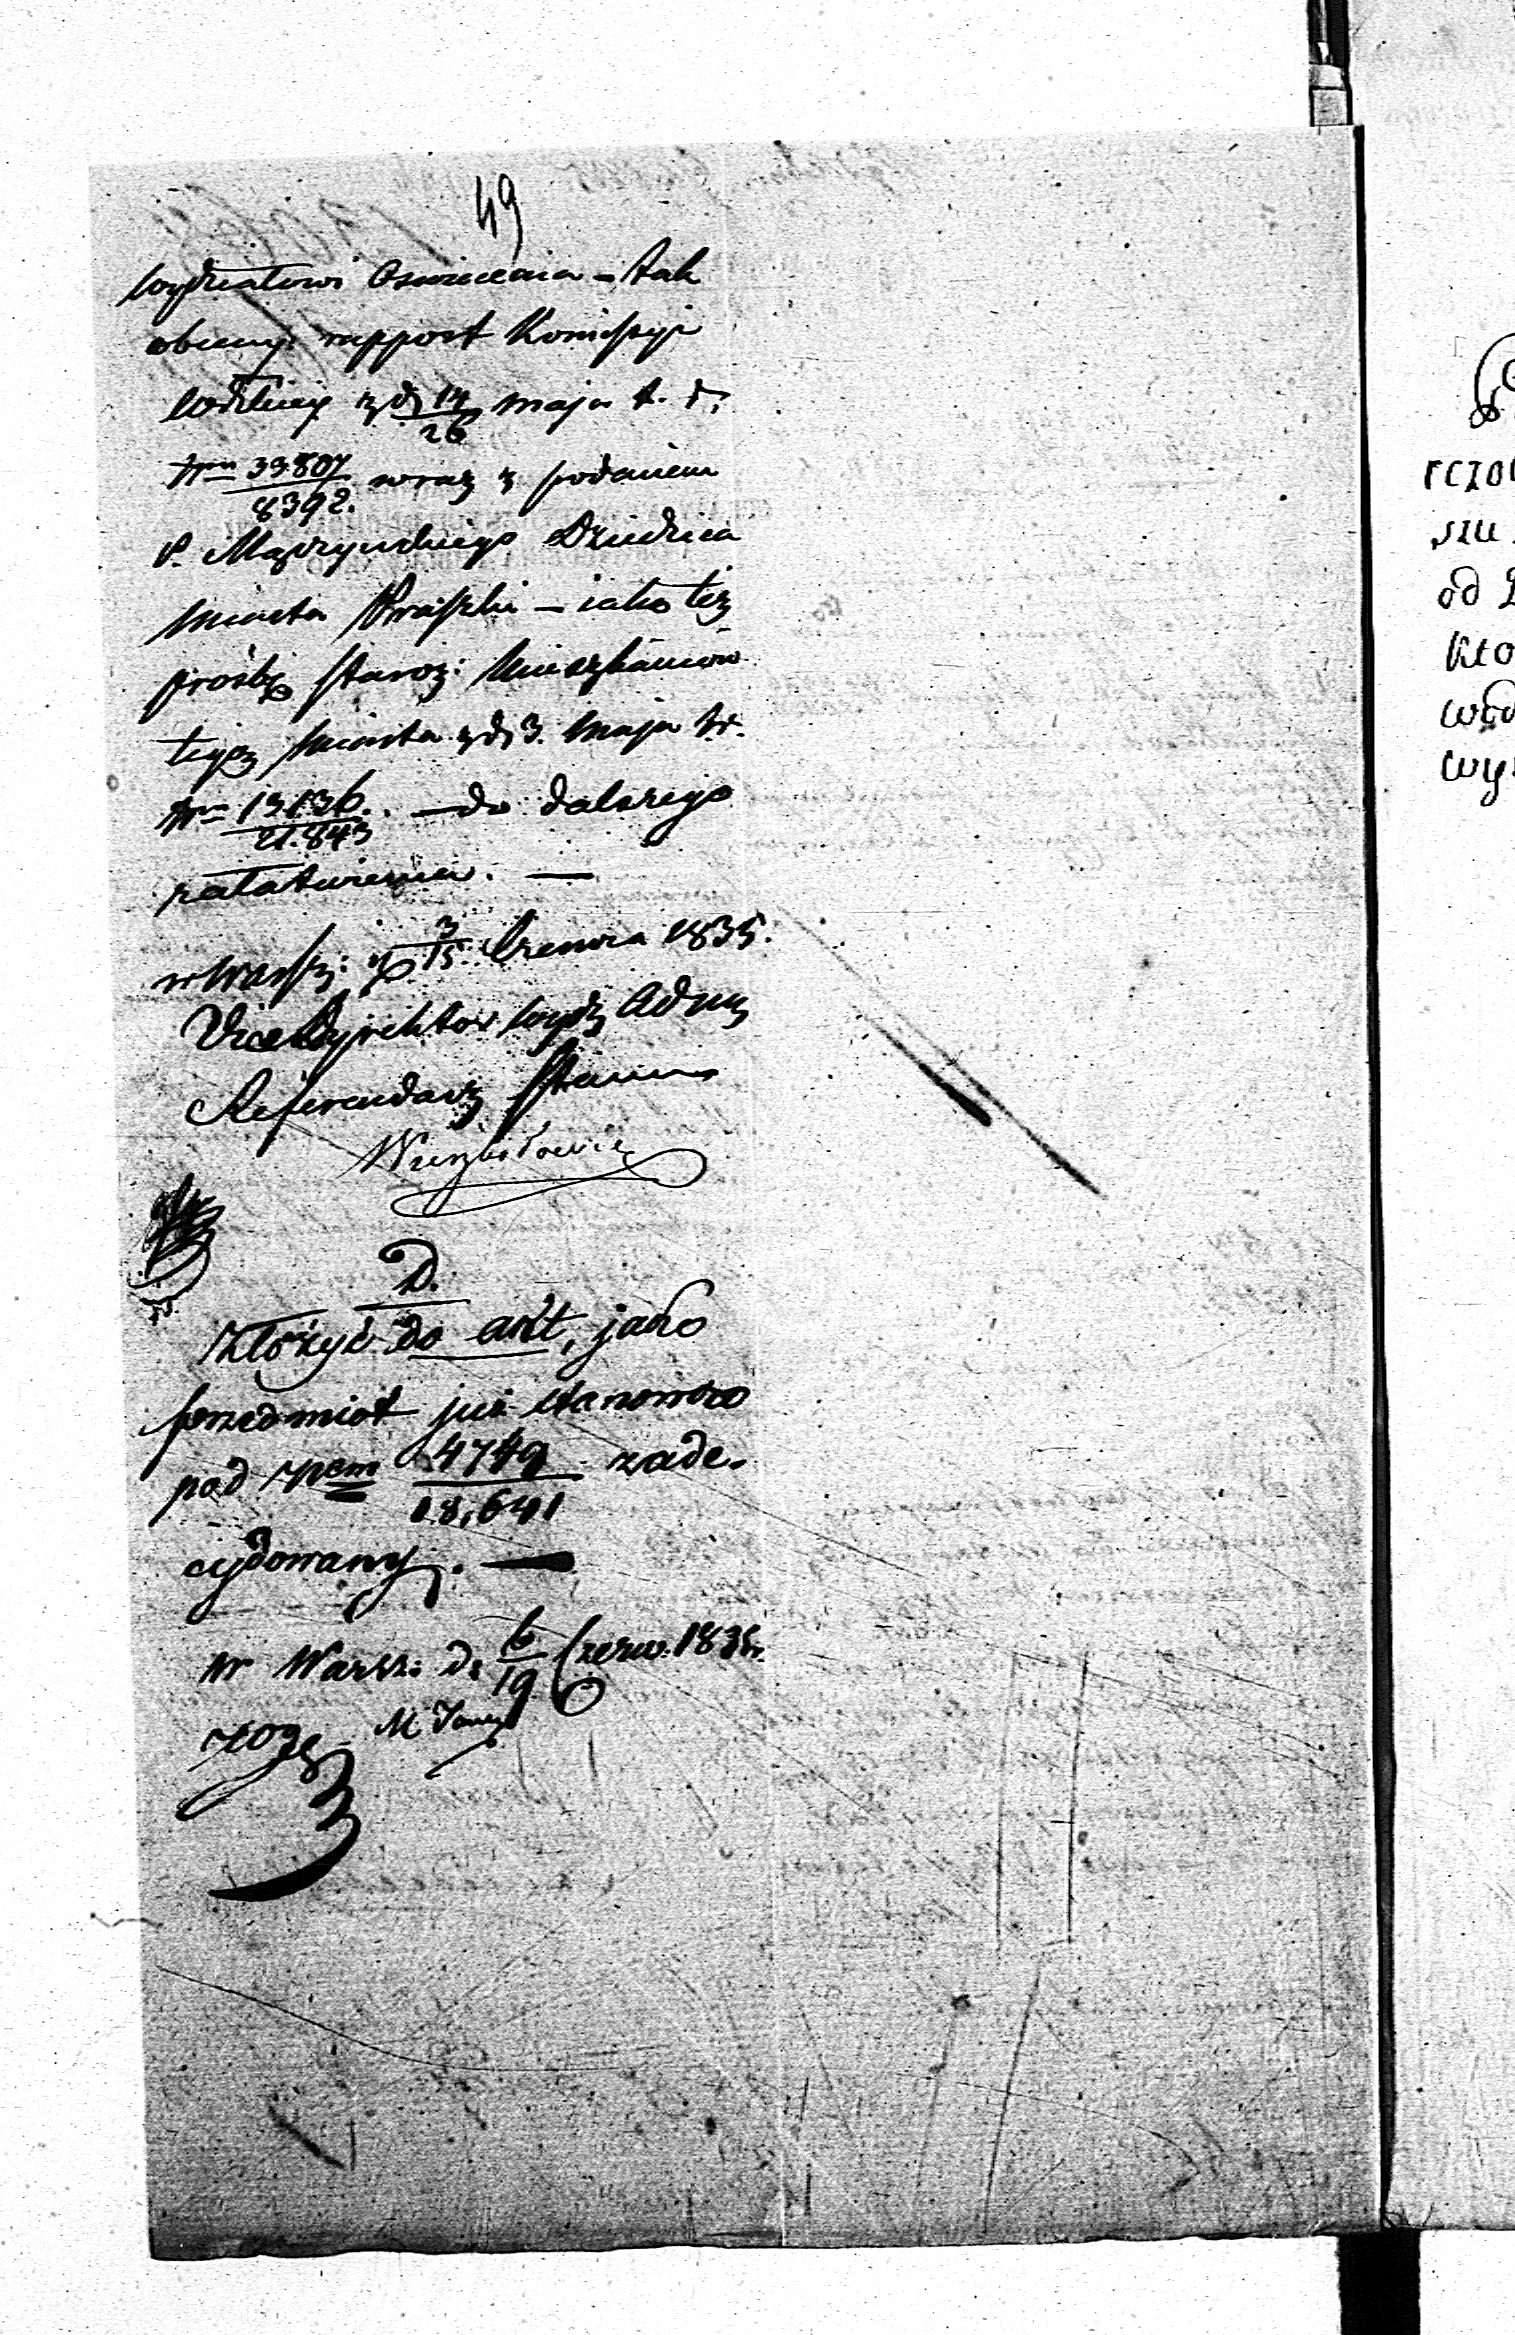 49
Wydziałowi Oświecenia – tak
obecny rapport Kommissyi
Wdzkiej z d. 14/26 maja t. r.
Nrm 33.807/8392. wraz z podaniem
P. Mączyńskiego Dziedzica
miasta Praszki – iako też
prośbę staroz: Mieszkańców
tegoż Miasta z d. 3. Maja t.r.
Nrm 13136./21.843 – do dalszego
załatwienia. —
w Warsz: d. 3/15 Czerwca 1835.
Vice Dyrektor Wydz Admin
Referendarz Stanu
D.
Złożyć do akt, jako
przedmiot już stanowczo
pod Nrem 4749/18,641 zade-
cydowany. —
W Warsz: d. 6/19 Czerw. 1835 r.
reszu
od
wy